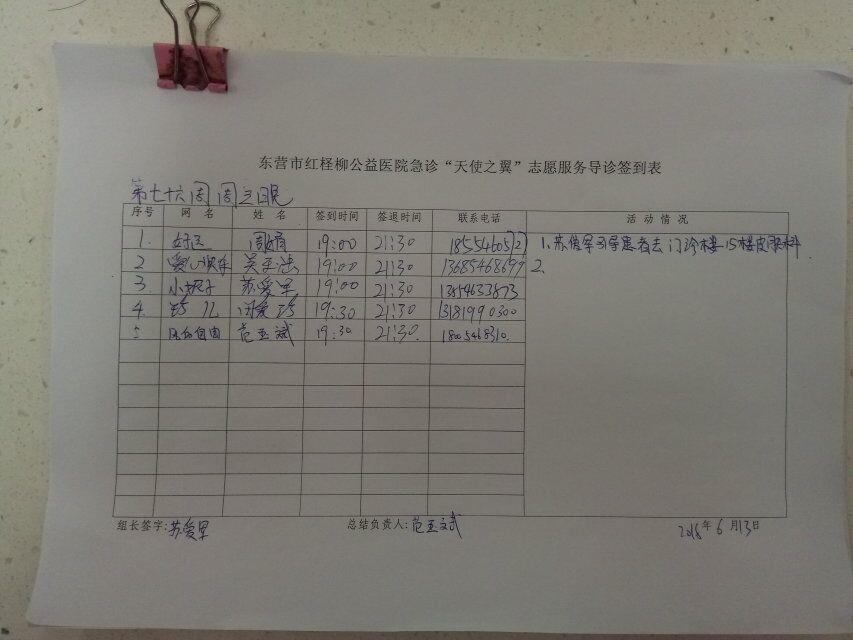 东营市红柽柳公益医院急诊“天使之翼”志愿服务导诊签到表
第七十六周 周三晚
序号 网 名 姓 名 签到时间 签退时间 联系电话 活 动 情 况
1. 好运 周娟 19:00 21:30 1.苏爱军引导患者去门诊楼15楼皮肤科
2 爱心快乐 19:00 21:30 13685468699 2.
3. 小胡子 苏爱军 19:00 21:30 13854633873
4. 19:30 21:30 13181990300
5 范玉斌 19:30 21:30. 18005468310.
组长签字:苏爱军 总结负责人:范玉斌 2018年6月13日